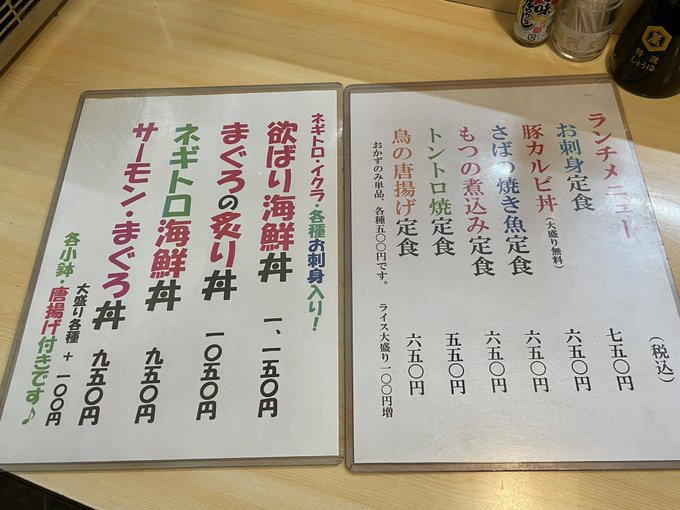 ランチメニュー (税込)
お刺身定食 七五〇円
豚カルビ丼(大盛り無料) 六五〇円
さばの焼き魚定食 六五〇円
もつの煮込み定食 六五〇円
トントロ焼定食 五五〇円
鳥の唐揚げ定食 六五〇円
おかずのみ単品、各種五〇〇円です。 ライス大盛り一〇〇円増
ネギトロ・イクラ・各種お刺身入り!
欲ばり海鮮丼 一、一五〇円
まぐろの炙り丼 一〇五〇円
ネギトロ海鮮丼 九五〇円
サーモン・まぐろ丼 九五〇円
大盛り各種 + 一〇〇円
各小鉢・唐揚げ付きです♪
特選
しょうゆ